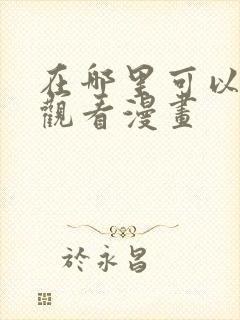 在哪里可以
觀看漫畫
於永昌